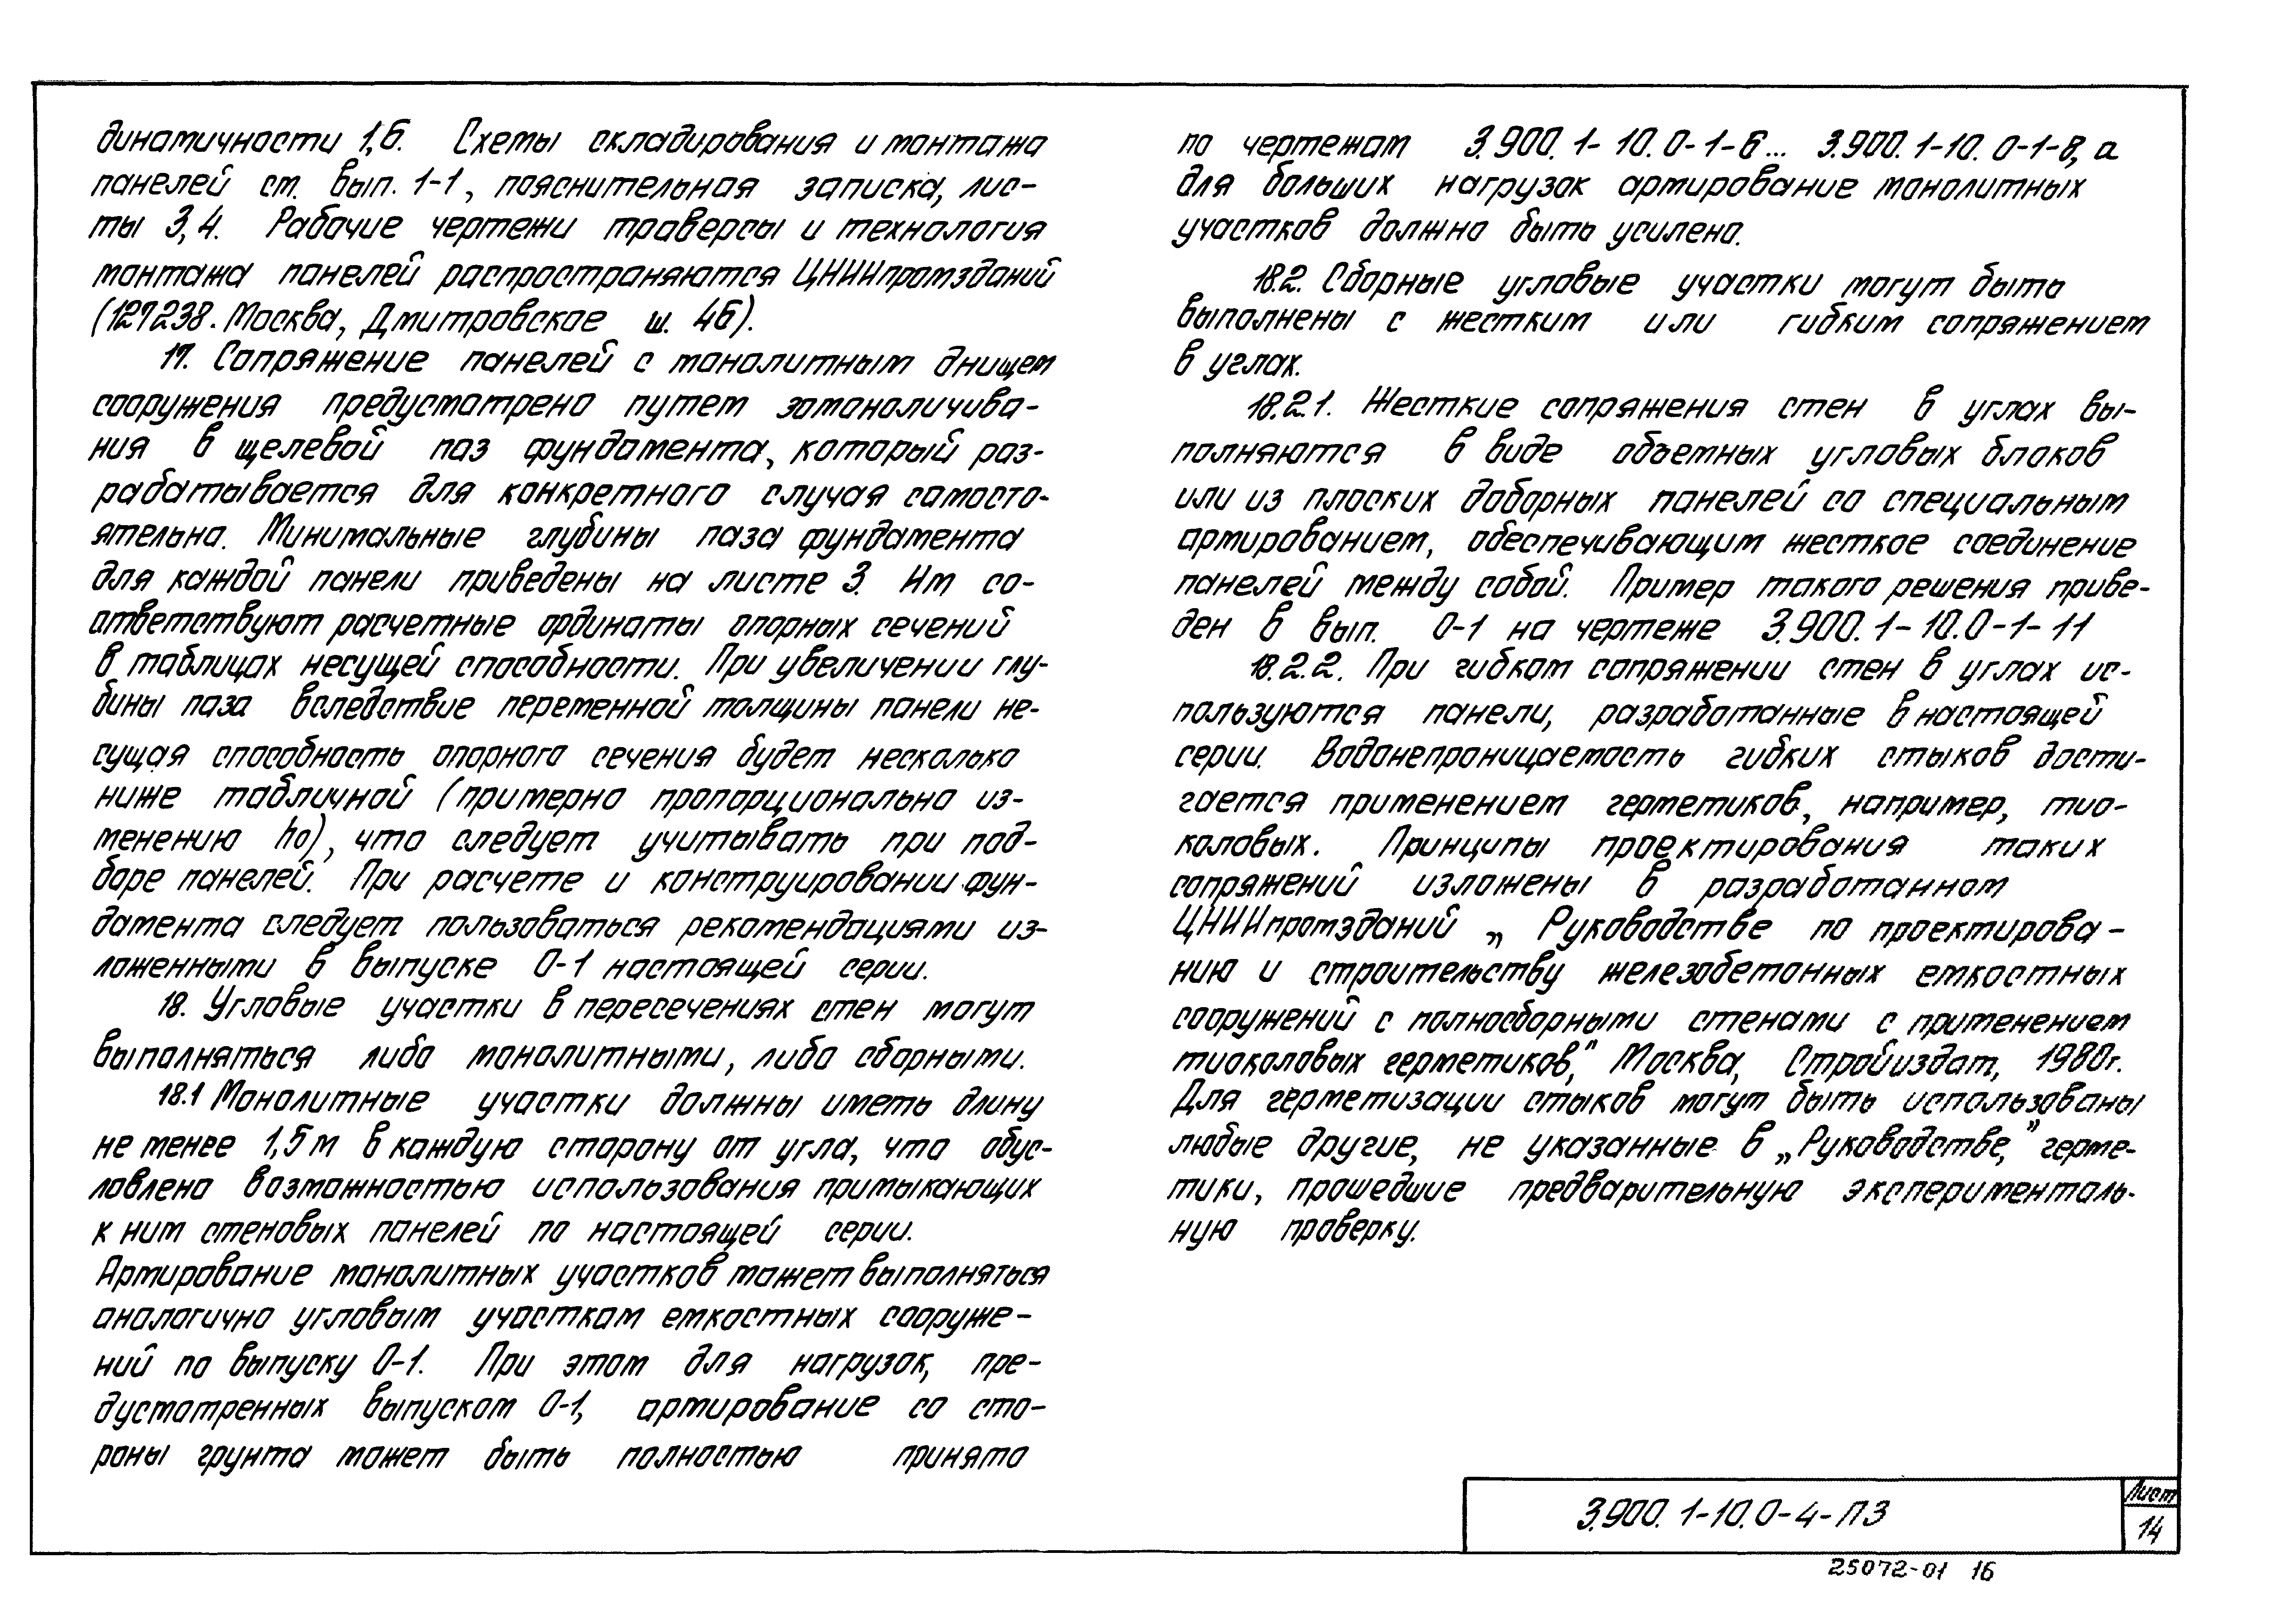 динамичности 1,6. Схемы складирования и монтажа
панелей см. вып. 1-1, пояснительная записка, лис-
ты 3,4. Рабочие чертежи траверсы и технология
монтажа панелей распространяются ЦНИИпромзданий
(127238. Москва, Дмитровское ш. 46).
17. Сопряжение панелей с монолитным днищем
сооружения предусмотрено путем замоноличива-
ния в щелевой паз фундамента, который раз-
рабатывается для конкретного случая самосто-
ятельно. Минимальные глубины паза фундамента
для каждой панели приведены на листе 3. Им со-
ответствуют расчетные ординаты опорных сечений
в таблицах несущей способности. При увеличении глу-
бины паза вследствие переменной толщины панели не-
сущая способность опорного сечения будет несколько
ниже табличной (примерно пропорционально из-
менению h0), что следует учитывать при под-
боре панелей. При расчете и конструировании фун-
дамента следует пользоваться рекомендациями из-
ложенными в выпуске 0-1 настоящей серии.
18. Угловые участки в пересечениях стен могут
выполняться либо монолитными, либо сборными.
18.1 Монолитные участки должны иметь длину
не менее 1,5 м в каждую сторону от угла, что обус-
ловлено возможностью использования примыкающих
к ним стеновых панелей по настоящей серии.
Армирование монолитных участков может выполняться
аналогично угловым участкам емкостных сооруже-
ний по выпуску 0-1. При этом для нагрузок, пре-
дусмотренных выпуском 0-1, армирование со сто-
роны грунта может быть полностью принято
по чертежам 3.900.1-10.0-1-6... 3.900.1-10.0-1-8, а
для больших нагрузок армирование монолитных
участков должно быть усилено.
18.2. Сборные угловые участки могут быть
выполнены с жестким или гибким сопряжением
в углах.
18.2.1. Жесткие сопряжения стен в углах вы-
полняются в виде объемных угловых блоков
или из плоских доборных панелей со специальным
армированием, обеспечивающим жесткое соединение
панелей между собой. Пример такого решения приве-
ден в вып. 0-1 на чертеже 3.900.1-10.0-1-11
18.2.2. При гибком сопряжении стен в углах ис-
пользуются панели, разработанные в настоящей
серии. Водонепроницаемость гибких стыков дости-
гается применением герметиков, например, тио-
коловых. Принципы проектирования таких
сопряжений изложены в разработанном
ЦНИИпромзданий „Руководстве по проектирова-
нию и строительству железобетонных емкостных
сооружений с полносборными стенами с применением
тиоколовых герметиков," Москва, Стройиздат, 1980г.
Для герметизации стыков могут быть использованы
любые другие, не указанные в „Руководстве," герме-
тики, прошедшие предварительную эксперименталь-
ную проверку.
3.900.1-10.0-4-ПЗ
Лист
14
25072-01 16